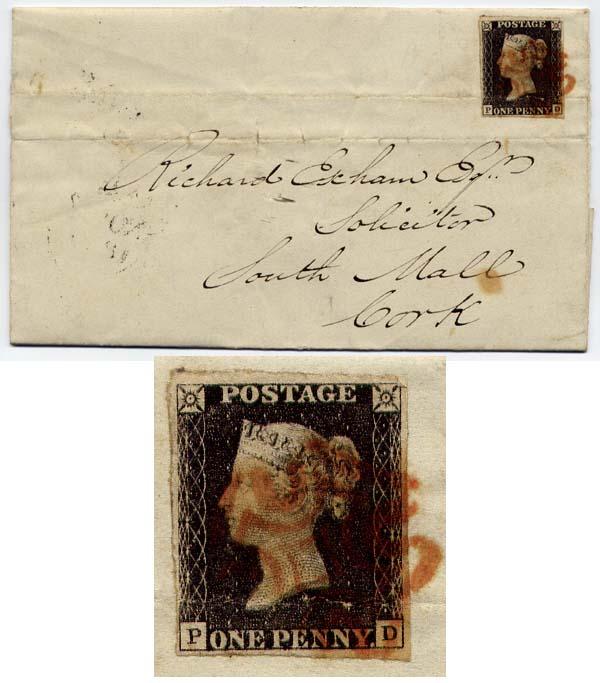 POSTAGE
P ONE PENNY D
Richard Exham Esqr.
Solicitor
South Mall
Cork
POSTAGE
P ONE PENNY D